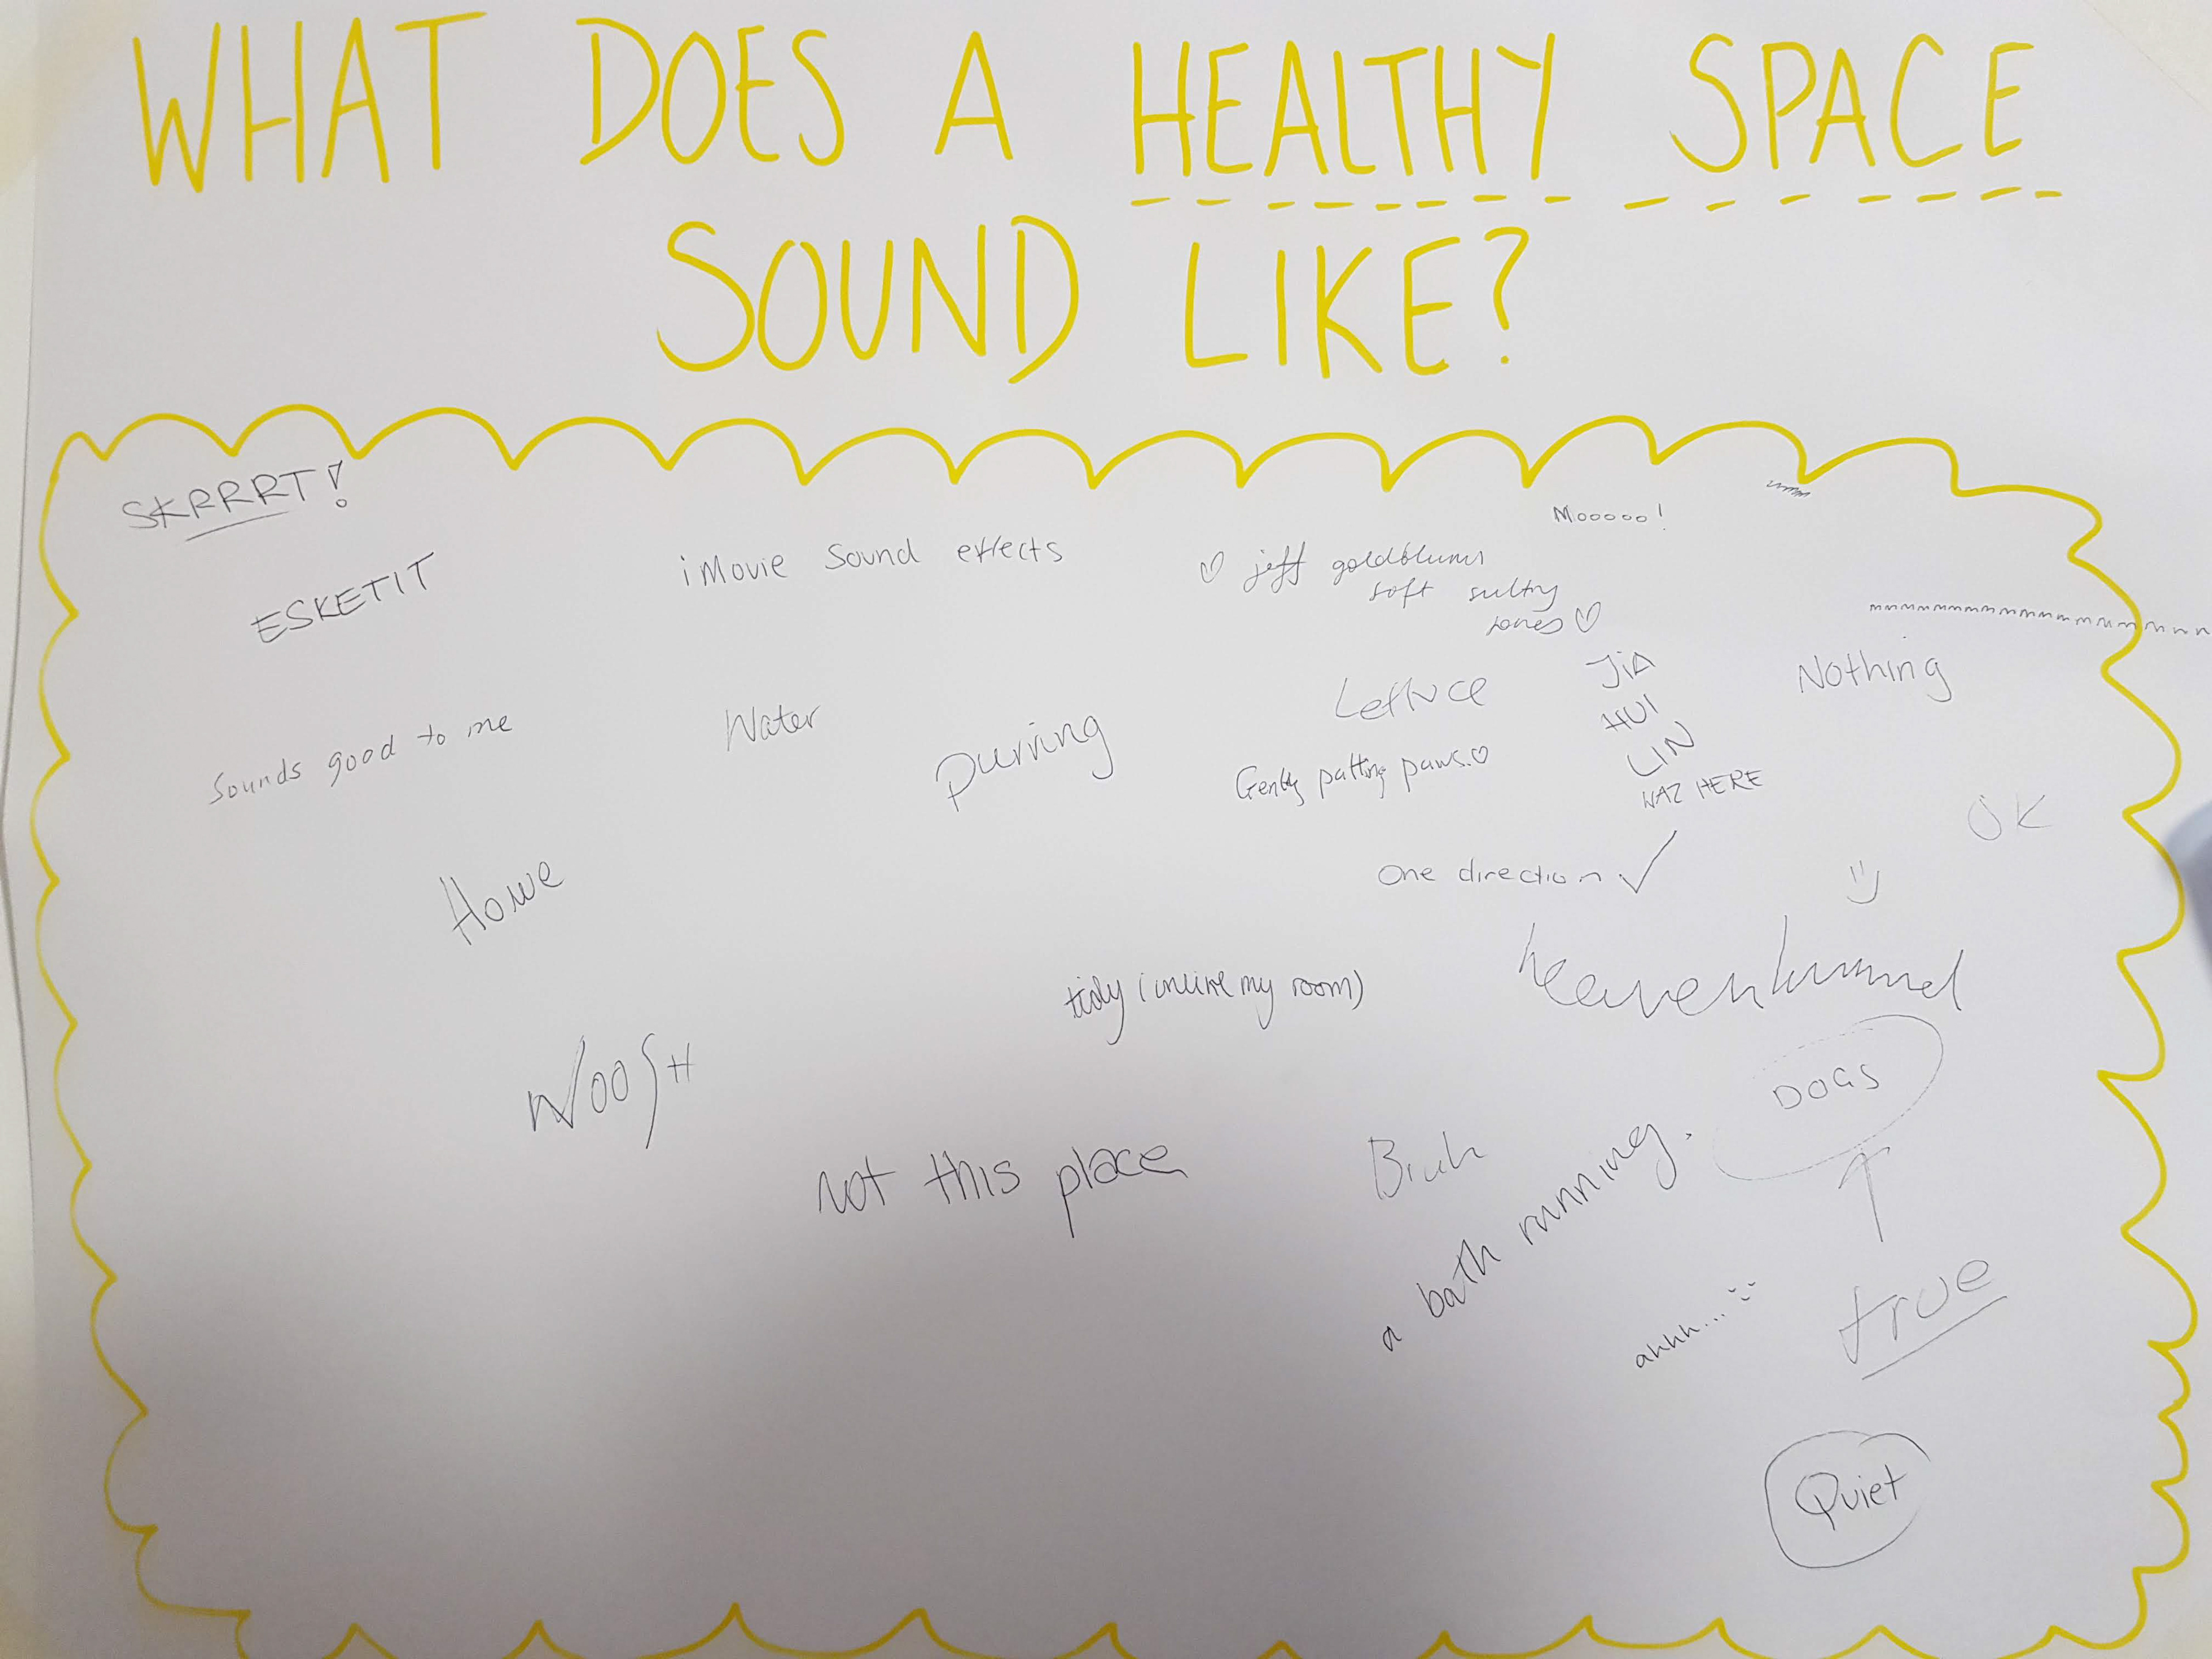 WHAT DOES A HEALTHY SPACE
SOUND LIKE?
SKRRRT!
ESKETIT
iMovie Sound effects
♡ jeff goldblums
soft sultry
tones ♡
Mooooo!
Sounds good to me
Water
purring
Lettuce
Gently patting paws. ♡
JiA
HUI
LIN
WAZ HERE
Nothing
OK
Home
One direction ✓
tidy (unlike my room)
WOOSH
not this place
Bruh
a bath running.
DOGS
↑
true
ahhh...
Quiet